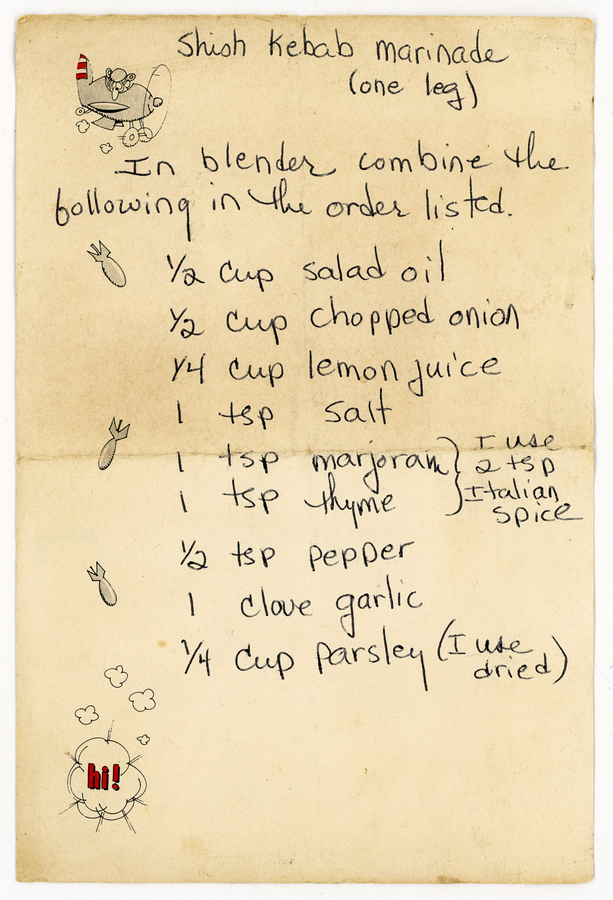 Shish Kebab marinade
(one leg)
In blender combine the
following in the order listed.
1/2 cup salad oil
1/2 cup chopped onion
1/4 cup lemon juice
1 tsp salt
1 tsp marjoram } I use
2 tsp
1 tsp thyme } Italian
spice
1/2 tsp pepper
1 clove garlic
1/4 cup parsley (I use
dried)
hi!